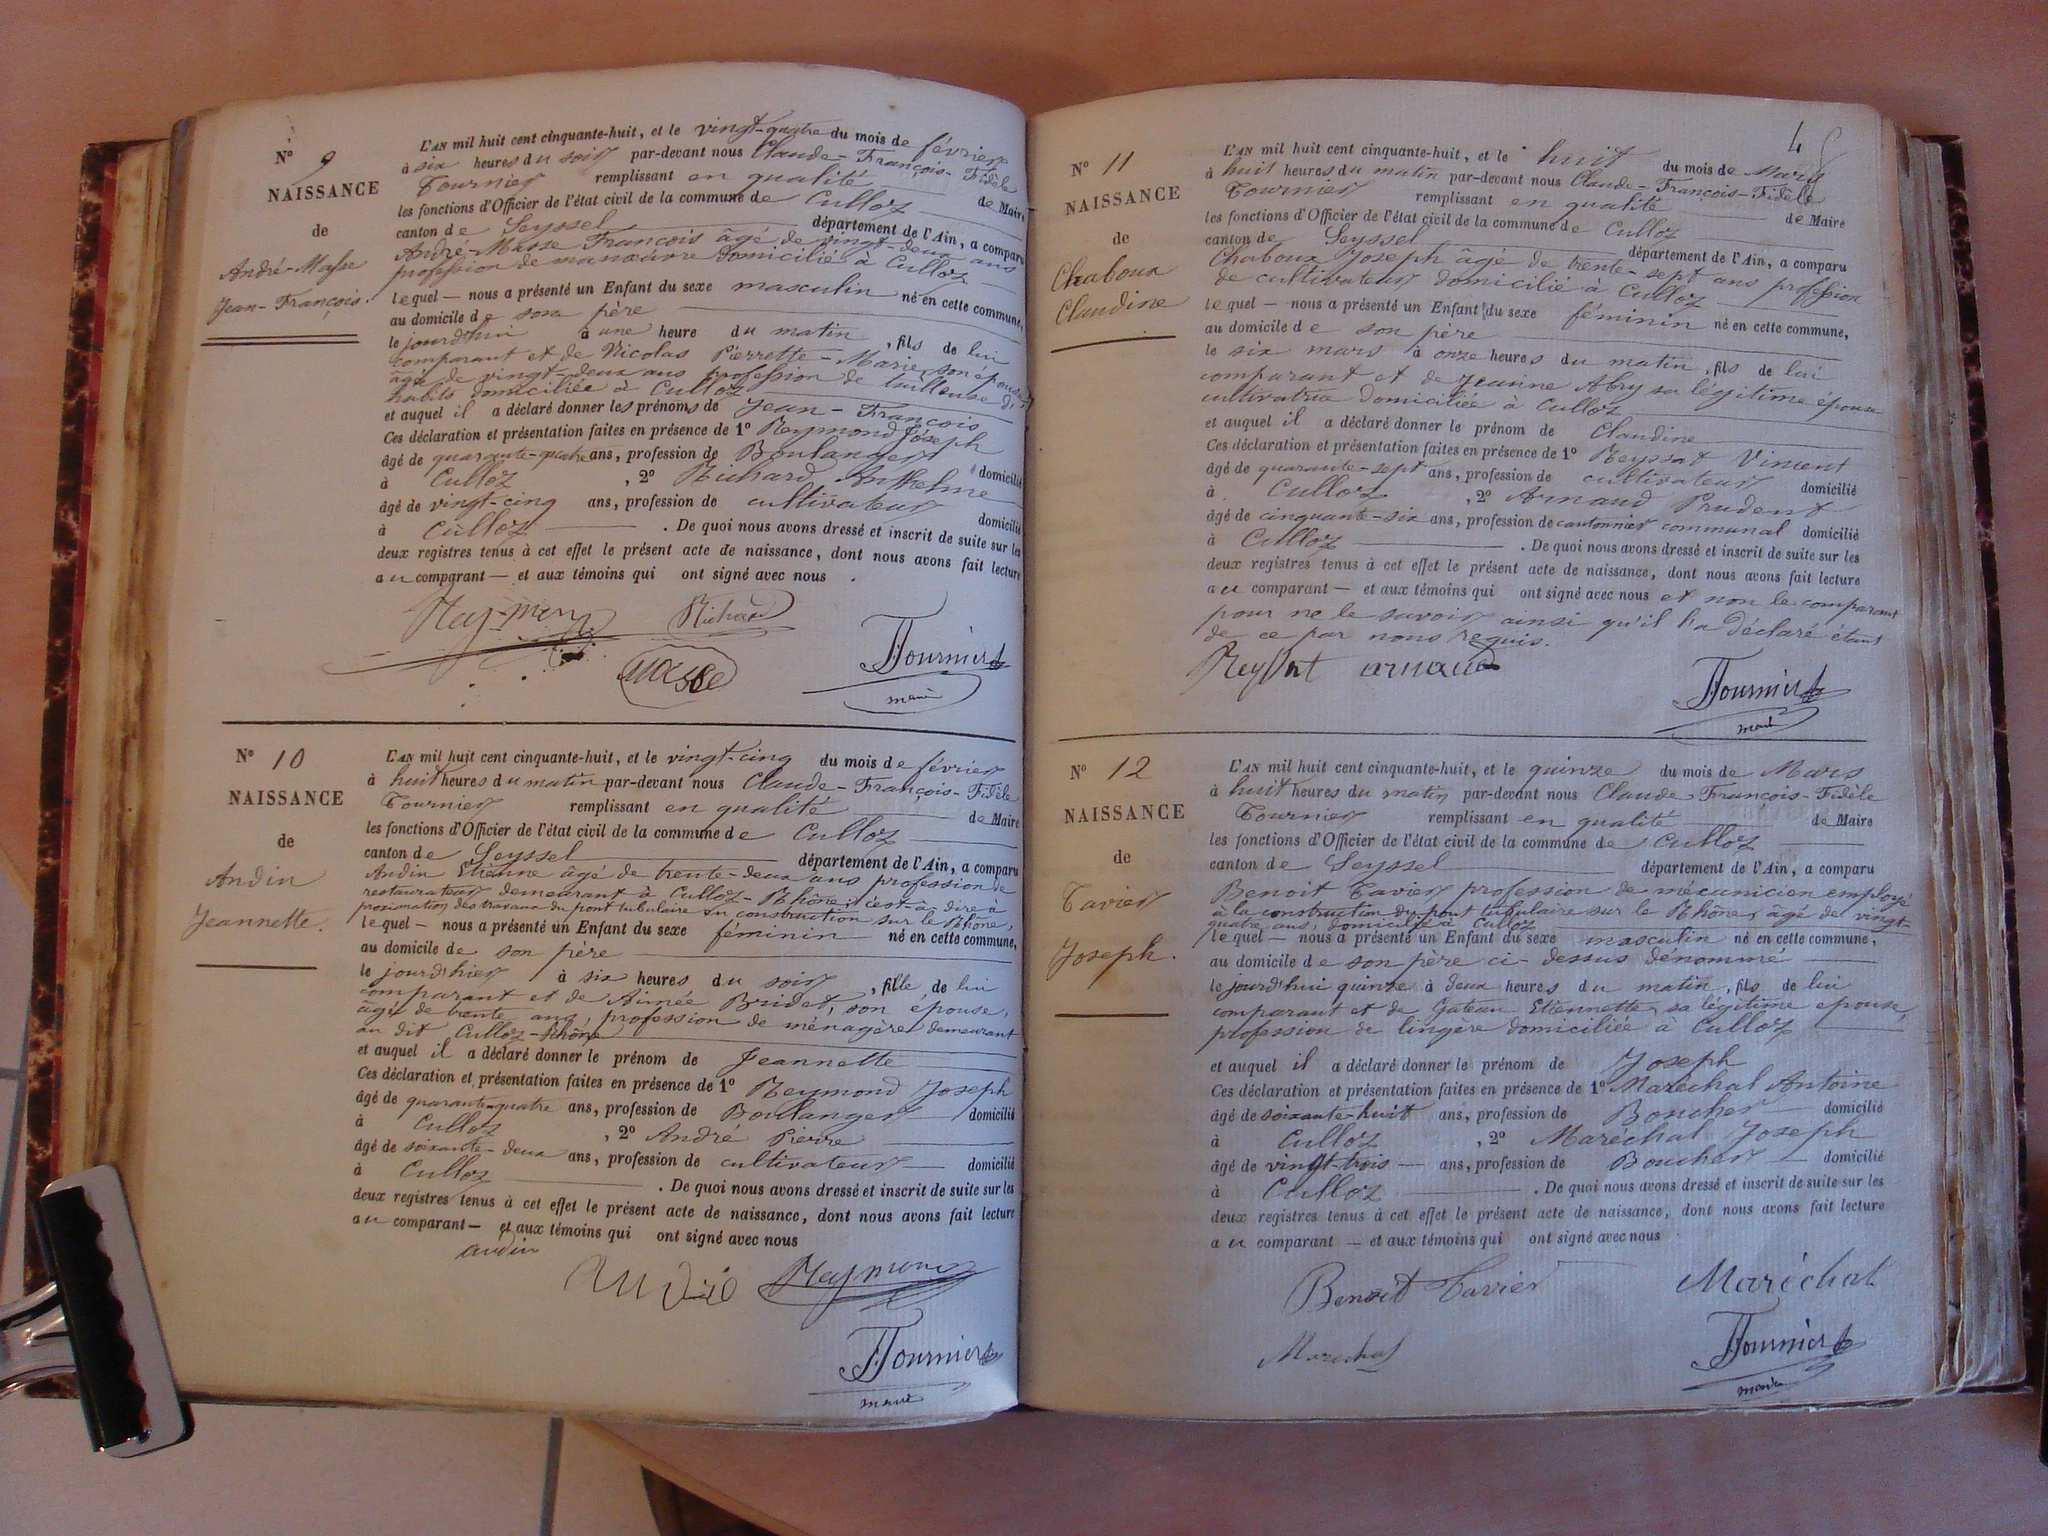 N° 9
NAISSANCE
de
André-Masse
Jean-François.
L'AN mil huit cent cinquante-huit, et le vingt-quatre du mois de février
à six heures du soir par-devant nous Claude-François-Fidèle
Tournier remplissant en qualité de Maire
les fonctions d'Officier de l'état civil de la commune de Culloz
canton de Seyssel département de l'Ain, a comparu
André-Masse François âgé de vingt-deux ans
profession de manœuvre domicilié à Culloz
lequel — nous a présenté un Enfant du sexe masculin né en cette commune,
au domicile de son père
le jourd'hui à une heure du matin, fils de lui
comparant et de Nicolas Pierrette-Marie, son épouse
âgée de vingt-deux ans profession de tailleuse d'
habits domiciliée à Culloz
et auquel il a déclaré donner les prénoms de Jean-François
Ces déclaration et présentation faites en présence de 1° Reymond Joseph
âgé de quarante-quatre ans, profession de Boulanger domicilié
à Culloz, 2° Richard Anthelme
âgé de vingt-cinq ans, profession de cultivateur domicilié
à Culloz. De quoi nous avons dressé et inscrit de suite sur les
deux registres tenus à cet effet le présent acte de naissance, dont nous avons fait lecture
au comparant — et aux témoins qui ont signé avec nous.
Raymond Richard
masse Tournier
maire
N° 10
NAISSANCE
de
Andin
Jeannette.
L'AN mil huit cent cinquante-huit, et le vingt-cinq du mois de février
à huit heures du matin par-devant nous Claude-François-Fidèle
Tournier remplissant en qualité de Maire
les fonctions d'Officier de l'état civil de la commune de Culloz
canton de Seyssel département de l'Ain, a comparu
Andin Etienne âgé de trente-deux ans profession de
restaurateur demeurant à Culloz-Rhône, c'est-à-dire à
proximation des travaux du pont tubulaire en construction sur le Rhône,
lequel — nous a présenté un Enfant du sexe féminin né en cette commune,
au domicile de son père
le jourd'hier à six heures du soir, fille de lui
comparant et de Aimée Bridet, son épouse,
âgée de trente ans, profession de ménagère demeurant
au dit Culloz-Rhône
et auquel il a déclaré donner le prénom de Jeannette
Ces déclaration et présentation faites en présence de 1° Reymond Joseph
âgé de quarante-quatre ans, profession de Boulanger domicilié
à Culloz, 2° André Pierre
âgé de soixante-deux ans, profession de cultivateur domicilié
à Culloz. De quoi nous avons dressé et inscrit de suite sur les
deux registres tenus à cet effet le présent acte de naissance, dont nous avons fait lecture
au comparant — et aux témoins qui ont signé avec nous
andin
Raymond
Tournier
maire
N° 11
NAISSANCE
de
Chaboux
Claudine
L'AN mil huit cent cinquante-huit, et le huit du mois de Mars
à huit heures du matin par-devant nous Claude-François-Fidèle
Tournier remplissant en qualité de Maire
les fonctions d'Officier de l'état civil de la commune de Culloz
canton de Seyssel département de l'Ain, a comparu
Chaboux Joseph âgé de trente-sept ans profession
de cultivateur domicilié à Culloz
lequel — nous a présenté un Enfant du sexe féminin né en cette commune,
au domicile de son père
le six mars à onze heures du matin, fils de lui
comparant et de Jeanne Abry sa légitime épouse
cultivatrice domiciliée à Culloz
et auquel il a déclaré donner le prénom de Claudine
Ces déclaration et présentation faites en présence de 1° Reyssat Vincent
âgé de quarante-sept ans, profession de cultivateur domicilié
à Culloz, 2° Arnaud Prudent
âgé de cinquante-six ans, profession de cantonnier communal domicilié
à Culloz. De quoi nous avons dressé et inscrit de suite sur les
deux registres tenus à cet effet le présent acte de naissance, dont nous avons fait lecture
au comparant — et aux témoins qui ont signé avec nous et non le comparant
pour ne le savoir ainsi qu'il l'a déclaré étant
de ce par nous requis.
Reyssat arnaud
Tournier
maire
N° 12
NAISSANCE
de
Tavier
Joseph.
L'AN mil huit cent cinquante-huit, et le quinze du mois de Mars
à huit heures du matin par-devant nous Claude-François-Fidèle
Tournier remplissant en qualité de Maire
les fonctions d'Officier de l'état civil de la commune de Culloz
canton de Seyssel département de l'Ain, a comparu
Benoit Tavier profession de mécanicien employé
à la construction du pont tubulaire sur le Rhône, âgé de vingt-
quatre ans, domicilié à Culloz
lequel — nous a présenté un Enfant du sexe masculin né en cette commune,
au domicile de son père ci-dessus dénommé
le jourd'hui quinze à deux heures du matin, fils de lui
comparant et de Gateau Etiennette, sa légitime épouse,
profession de lingère domiciliée à Culloz
et auquel il a déclaré donner le prénom de Joseph
Ces déclaration et présentation faites en présence de 1° Maréchal Antoine
âgé de soixante-huit ans, profession de Boucher domicilié
à Culloz, 2° Maréchal Joseph
âgé de vingt-trois ans, profession de Boucher domicilié
à Culloz. De quoi nous avons dressé et inscrit de suite sur les
deux registres tenus à cet effet le présent acte de naissance, dont nous avons fait lecture
au comparant — et aux témoins qui ont signé avec nous
Benoit Tavier Maréchal
Marechal Tournier
maire